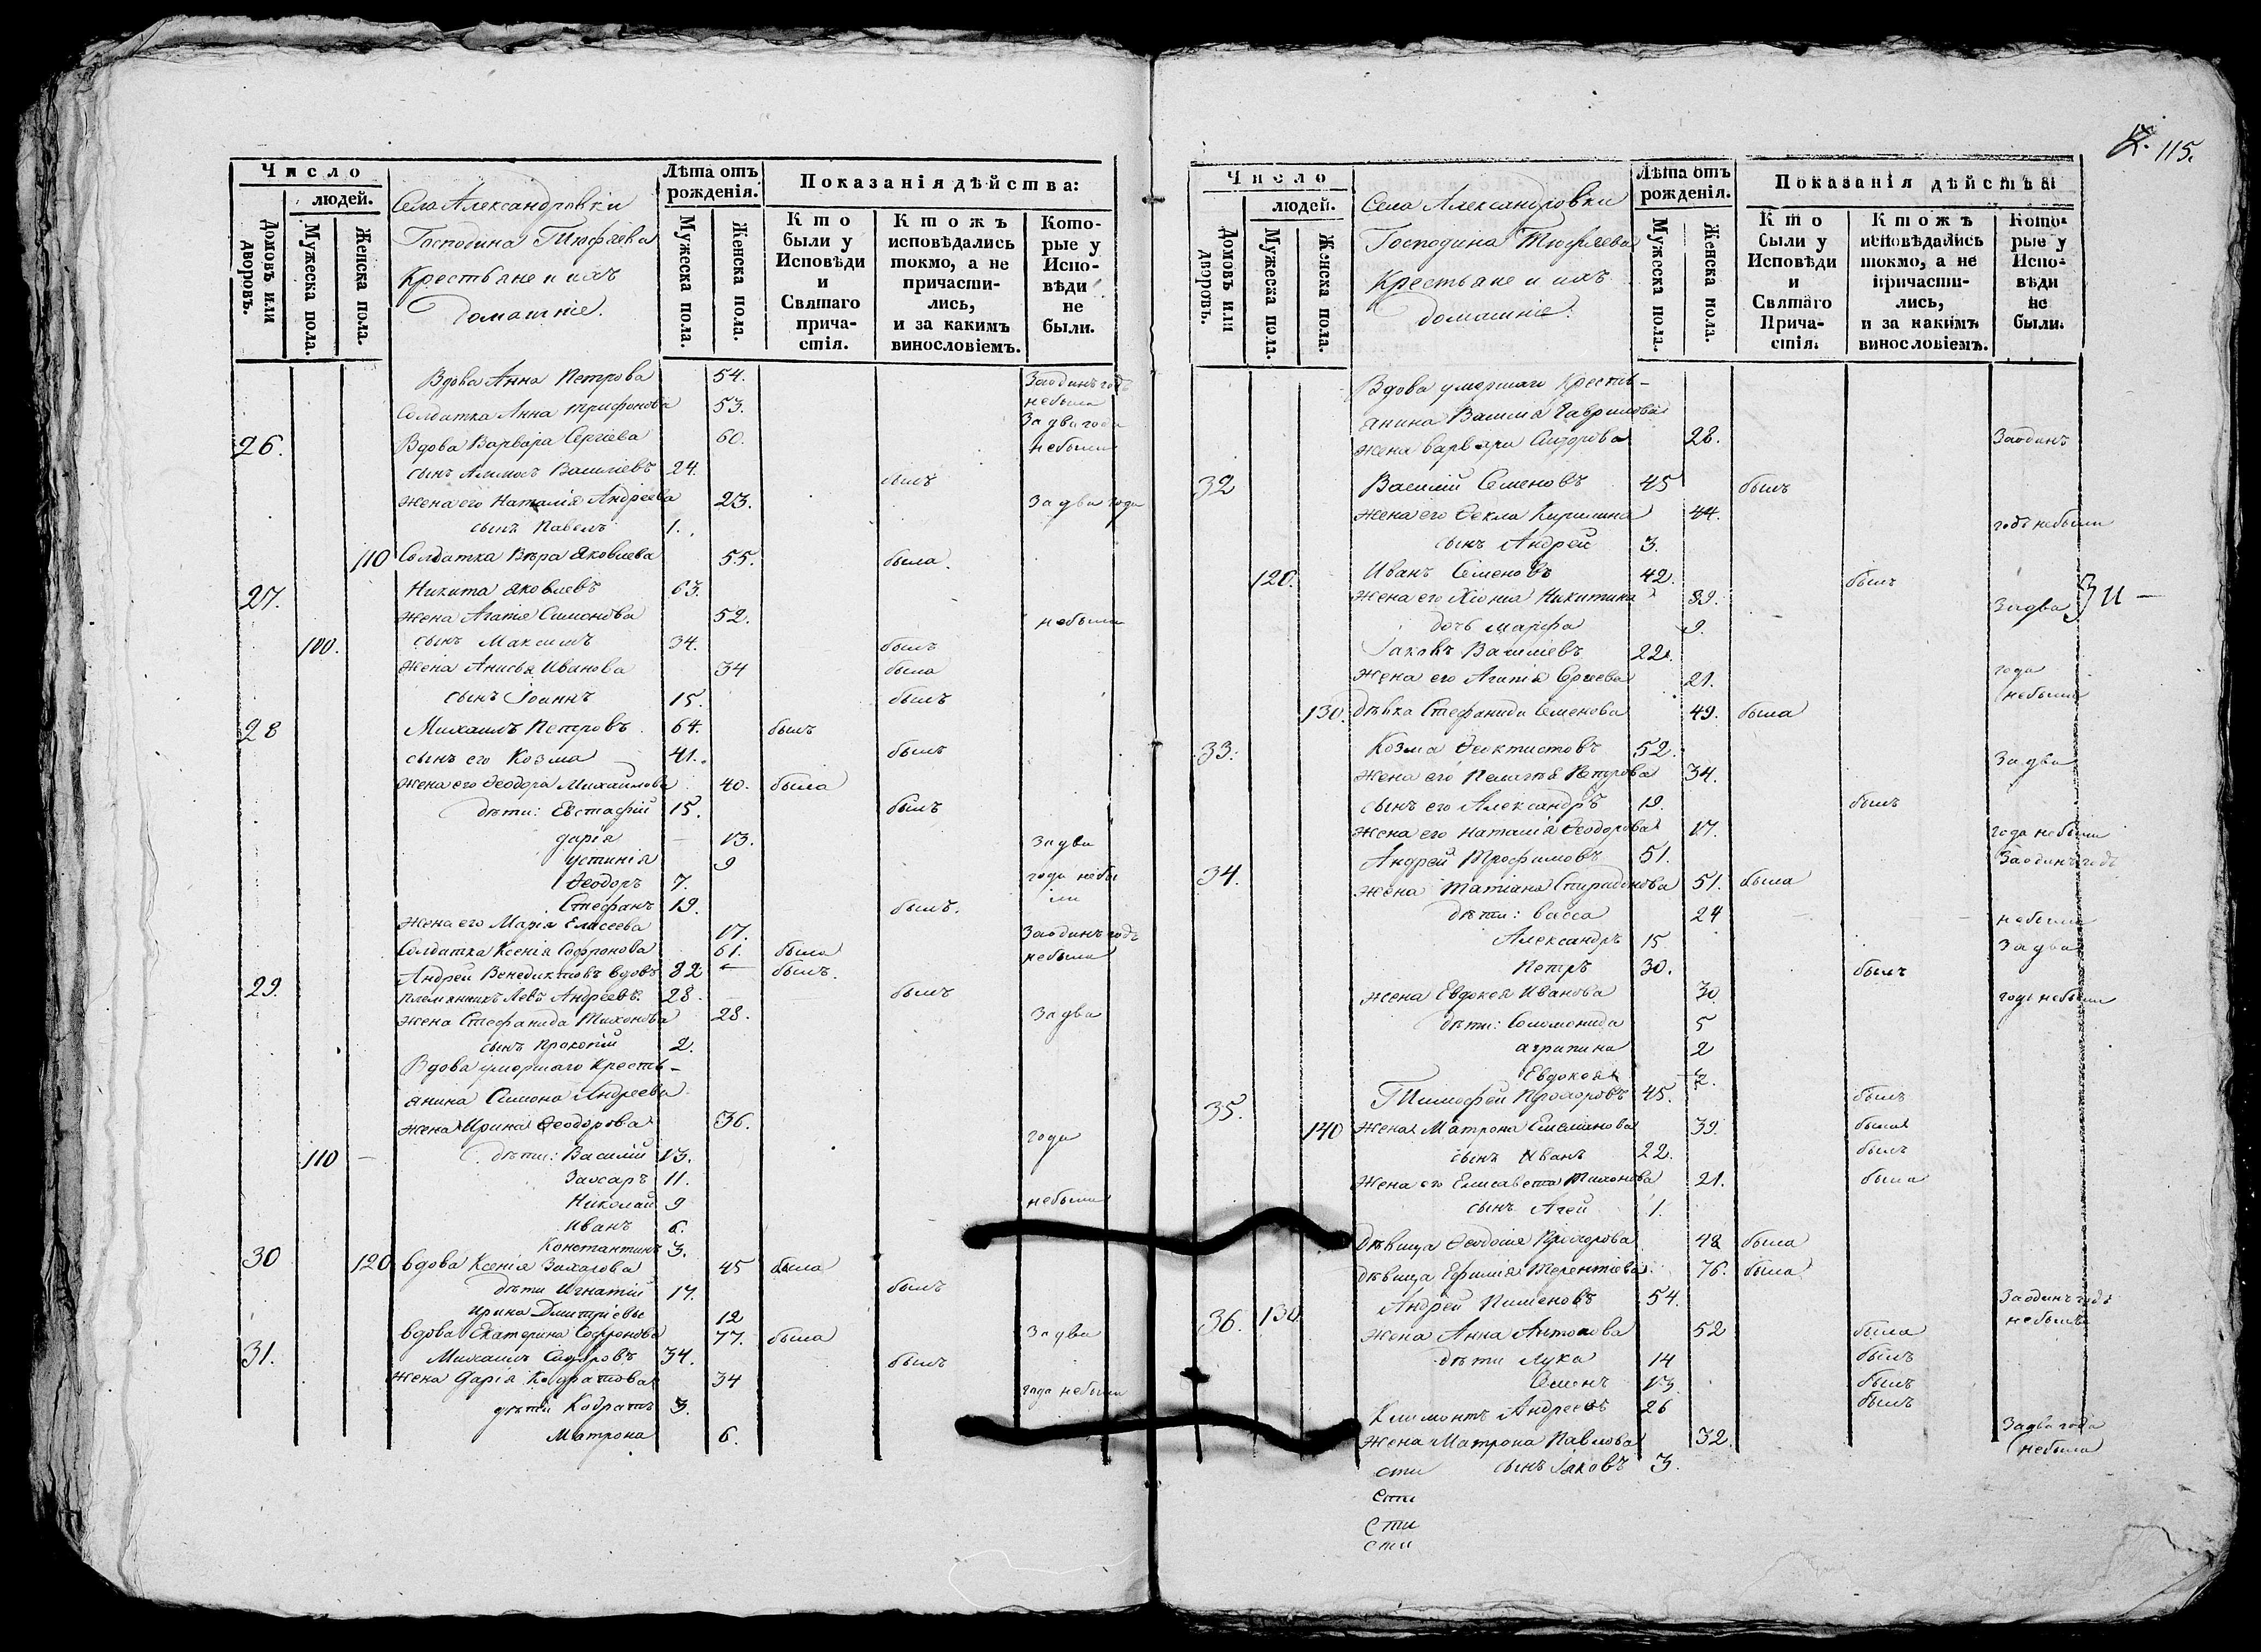 Число
людей.
Домовъ или дворовъ.
Мужеска пола.
Женска пола.
Села Александровки
Господина Тюфаева
Крестьяне и ихъ
домашніе.
Лѣта отъ рожденія.
Мужеска пола.
Женска пола.
Показанія дѣйства:
Кто были у Исповѣди и Святаго прича- стія.
Ктожъ исповѣдались токмо, а не причасти- лись, и за какимъ винословіемъ.
Кото- рые у Испо- вѣди не были.
Вдова Анна Петрова 54. Заодинъ годъ
небыла
Солдатка Анна Трифонова 53. За два года
26. Вдова Варвара Сергіева 60. небыли
сынъ Василіевъ 24. былъ
жена его Наталія Андреева 23. За два года
сынъ Павелъ 1.
110 Солдатка Вѣра Яковлева 55. была.
27. Никита Яковлевъ 63.
жена Агапія Симонова 52. небыли
100. сынъ Максимъ 34. былъ
жена Анисья Иванова 34 была
сынъ Іоаннъ 15. былъ
28 Михаилъ Петровъ 64. былъ
сынъ его Козма 41. былъ
жена его Ѳеодора Михайлова 40. была
дѣти: Евстафій 15. былъ
Дарія 13. За два
Устинія 9
Ѳеодоръ 7. года небы
ли
Стефанъ 19. былъ.
жена его Марія Елисеева 17. Заодинъ годъ
Солдатка Ксенія Софронова 61. была небыла
29. Андрей Венедиктовъ вдовъ 82 былъ.
племянникъ Левъ Андреевъ. 28. былъ
жена Стефанида Тихонова 28. За два
сынъ Прокопій 2.
Вдова умершаго Кресть-
янина Симона Андреева
жена Ирина Ѳеодорова 36. года
110 дѣти: Василій 13.
Захаръ 11.
Николай 9 небыли
Иванъ 6.
Константинъ 3.
30 120 вдова Ксенія Захарова 45 была
дѣти Игнатій 17. былъ
Ирина Дмитріевы 12
вдова Екатерина Софронова 77. была За два
31. Михаилъ Сидоровъ 34. былъ
жена Дарія Кодратова 34 года небыли
дѣти Кодратъ 3.
Матрона 6.
115.
Число
людей.
Домовъ или дворовъ.
Мужеска пола.
Женска пола.
Села Александровки
Господина Тюфяева
Крестьяне и ихъ
домашніе.
Лѣта отъ рожденія.
Мужеска пола.
Женска пола.
Показанія дѣйства
Кто были у Исповѣди и Святаго Прича- стія.
Ктожъ исповѣдались токмо, а не причасти- лись, и за какимъ винословіемъ.
Кото- рые у Испо- вѣди не были.
Вдова умершаго Кресть-
янина Василія Гаврилова
жена варвара Сидорова 28. Заодинъ
32 Василій Семеновъ 45 былъ
жена его Ѳекла Кирилина 44. годъ небыли
сынъ Андрей 3.
120. Иванъ Семеновъ 42. былъ
жена его Хіонія Никитина 39. За два
дочь Марфа 9.
Іаковъ Василіевъ 22. года
жена его Агапія Сергеева 21. небыли
130. дѣвка Стефанида Семенова 49. была
33. Козма Ѳеоктистовъ 52. За два
жена его Пелагѣя Петрова 34.
сынъ его Александръ 19. былъ
жена его Наталія Ѳеодорова 17. года небыли
34. Андрей Трофимовъ 51. Заодинъ годъ
жена Татіана Спиридонова 51. была
дѣти: васса 24 небыли
Александръ 15 За два
Петръ 30. былъ
жена Евдокея Иванова 30 года небыли
дѣти: Соломонида 5
агрипина 2
Евдокея
35. Тимофей Прохоровъ 45. былъ
140 жена Матрона Емелианова 39. была
сынъ Иванъ 22. былъ
жена его Елисавета Тихонова 21. была
сынъ Агей 1.
Дѣвица Ѳеодосія Прохорова 42 была
дѣвица Ефимія Терентіева 76. была
36. 130 Андрей Пименовъ 54. Заодинъ годъ
небылъ
жена Анна Антонова 52 была
дѣти Лука 14 былъ
Семенъ 13 былъ
Климонтъ Андреевъ 26 былъ
жена Матрона Павлова 32. За два года
небыла
сти сынъ Іаковъ 3.
сти
сти
сти